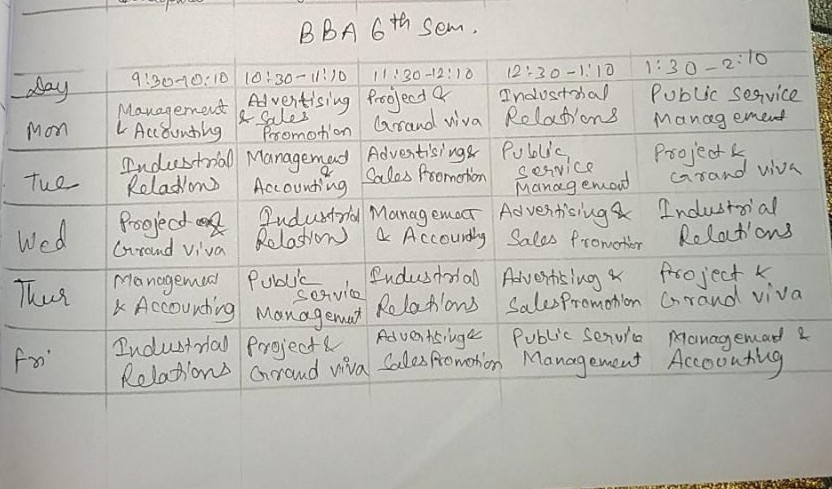 BBA 6th Sem.
Day 9:30-10:10 10:30-11:10 11:30-12:10 12:30-1:10 1:30-2:10
Mon Management & Accounting Advertising & Sales Promotion Project & Grand viva Industrial Relations Public Service Management
Tue Industrial Relations Management & Accounting Advertising & Sales Promotion Public Service Management Project & Grand viva
Wed Project & Grand viva Industrial Relations Management & Accounting Advertising & Sales Promotion Industrial Relations
Thur Management & Accounting Public Service Management Industrial Relations Advertising & Sales Promotion Project & Grand viva
Fri Industrial Relations Project & Grand viva Advertising & Sales Promotion Public Service Management Management & Accounting